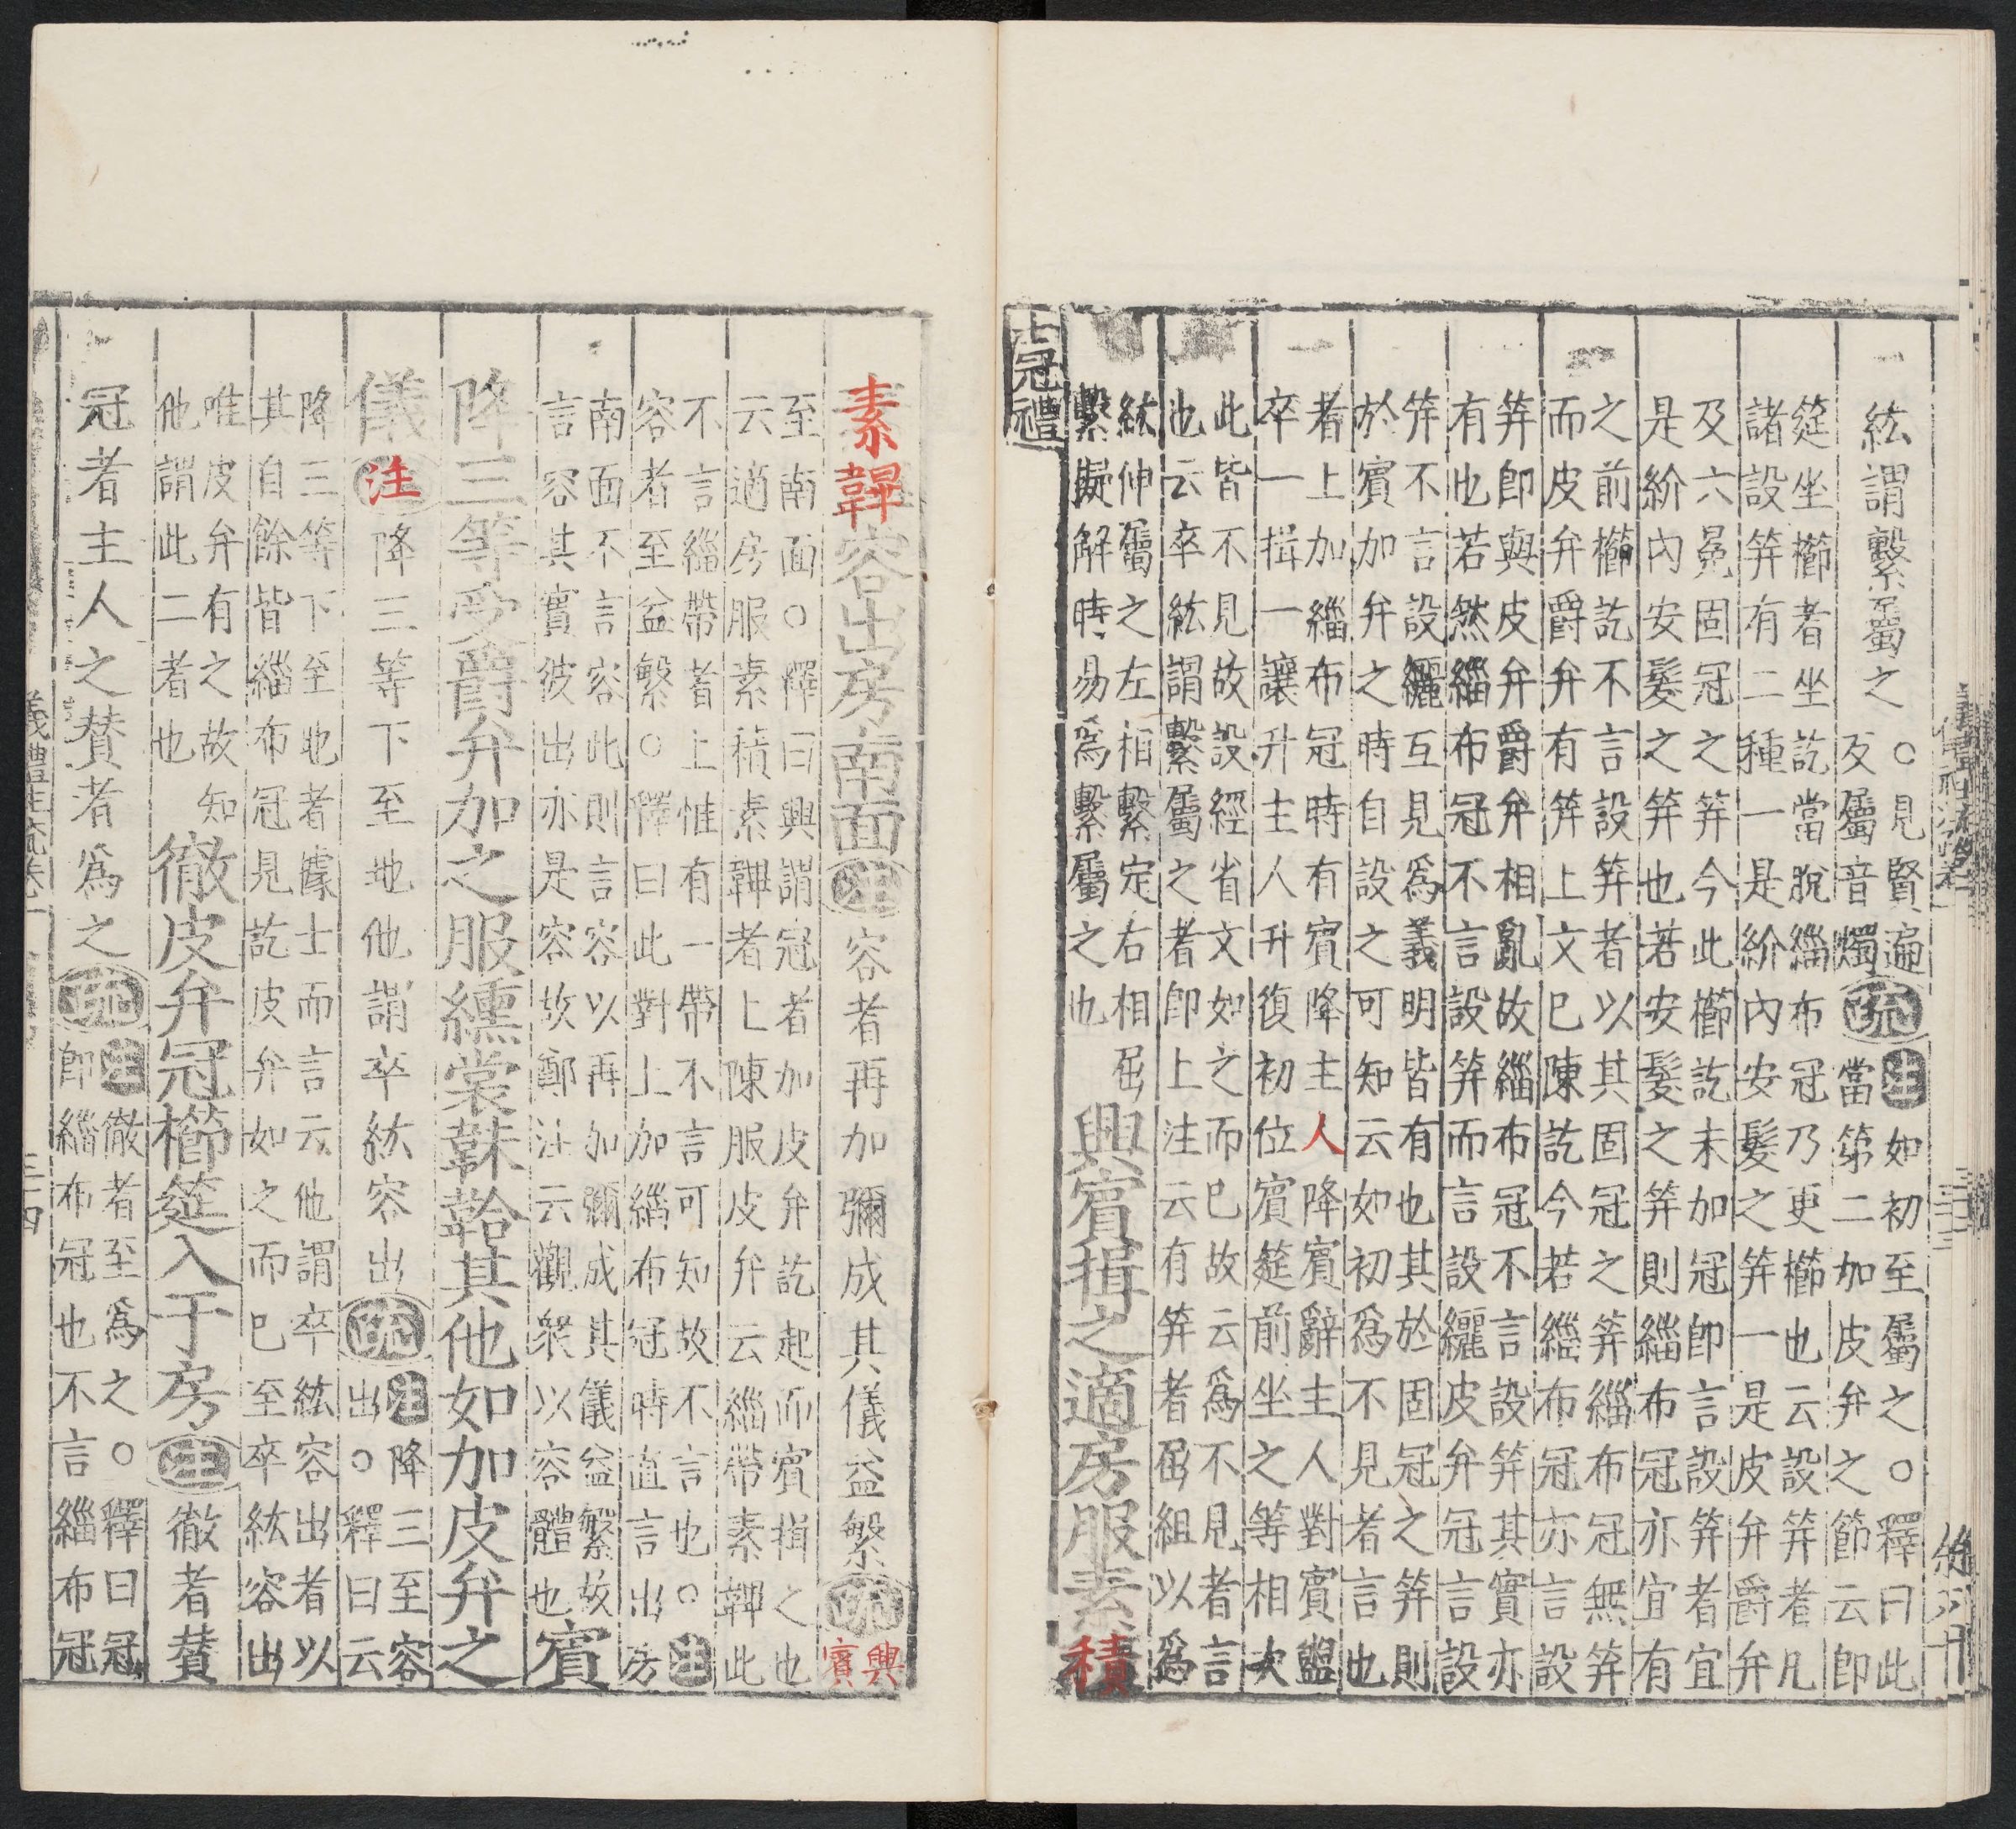 紘謂繫屬之
○見賢遍
反屬音燭
疏
注如初至屬之○釋曰此
當第二加皮弁之節云即
筵坐櫛者坐訖當脫緇布冠乃更櫛也云設笄者凡
諸設笄有二種一是紒內安髮之笄一是皮弁爵弁
及六冕固冠之笄今此櫛訖未加冠即言設笄者宜
是紒內安髮之笄也若安髮之笄則緇布冠亦宜有
之前櫛訖不言設笄者以其固冠之笄緇布冠無笄
而皮弁爵弁有笄上文已陳訖今若緇布冠亦言設
笄即與皮弁爵弁相亂故緇布冠不言設笄其實亦
有也若然緇布冠不言設笄而言設纚皮弁冠言設
笄不言設纚互見爲義明皆有也其於固冠之笄則
於賓加弁之時自設之可知云如初爲不見者言也
者上加緇布冠時有賓降主人降賓辭主人對賓盥
卒一揖一讓升主人升復初位賓筵前坐之等相次
此皆不見故設經省文如之而已故云爲不見者言
也云卒紘謂繫屬之者即上注云有笄者屈組以爲
紘伸屬之左相繫定右相屈
繫擬解時易爲繫屬之也
興賓揖之適房服素積
士冠禮
素韠容出房南面注容者再加彌成其儀益繁疏
興
賓
至南面○釋曰興謂冠者加皮弁訖起而賓揖之也
云適房服素積素韠者上陳服皮弁云緇帶素韠此
不言緇帶者上惟有一帶不言可知故不言也○注
容者至益繁○釋曰此對上加緇布冠時直言出房
南面不言容此則言容以再加彌成其儀益繁故
言容其實彼出亦是容故鄭注云觀衆以容體也
賓
降三等受爵弁加之服纁裳韎韐其他如加皮弁之
儀注降三等下至地他謂卒紘容出疏
注降三至容
出○釋曰云
降三等下至地者據士而言云他謂卒紘容出者以
其自餘皆緇布冠見訖皮弁如之而已至卒紘容出
唯皮弁有之故知
他謂此二者也
徹皮弁冠櫛筵入于房注徹者贊
冠者主人之贊者爲之疏
注徹者至爲之○釋曰冠
即緇布冠也不言緇布冠
儀禮註疏卷一
三十四